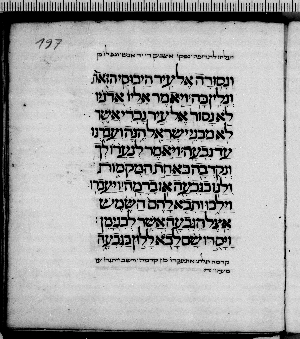 197
ונסורה אל עיר היבוסי הזאת
ונלין בה ויאמר אליו אדניו
לא נסור אל עיר נכרי אשר
לא מבני ישראל הנה ועברנו
עד גבעה ויאמר לנערו לך
ונקרבה באחד המקמות
ולנו בגבעה או ברמה ויעברו
וילכו ותבא להם השמש
אצל הגבעה אשר לבנימן
ויסרו שם לבוא ללון בגבעה